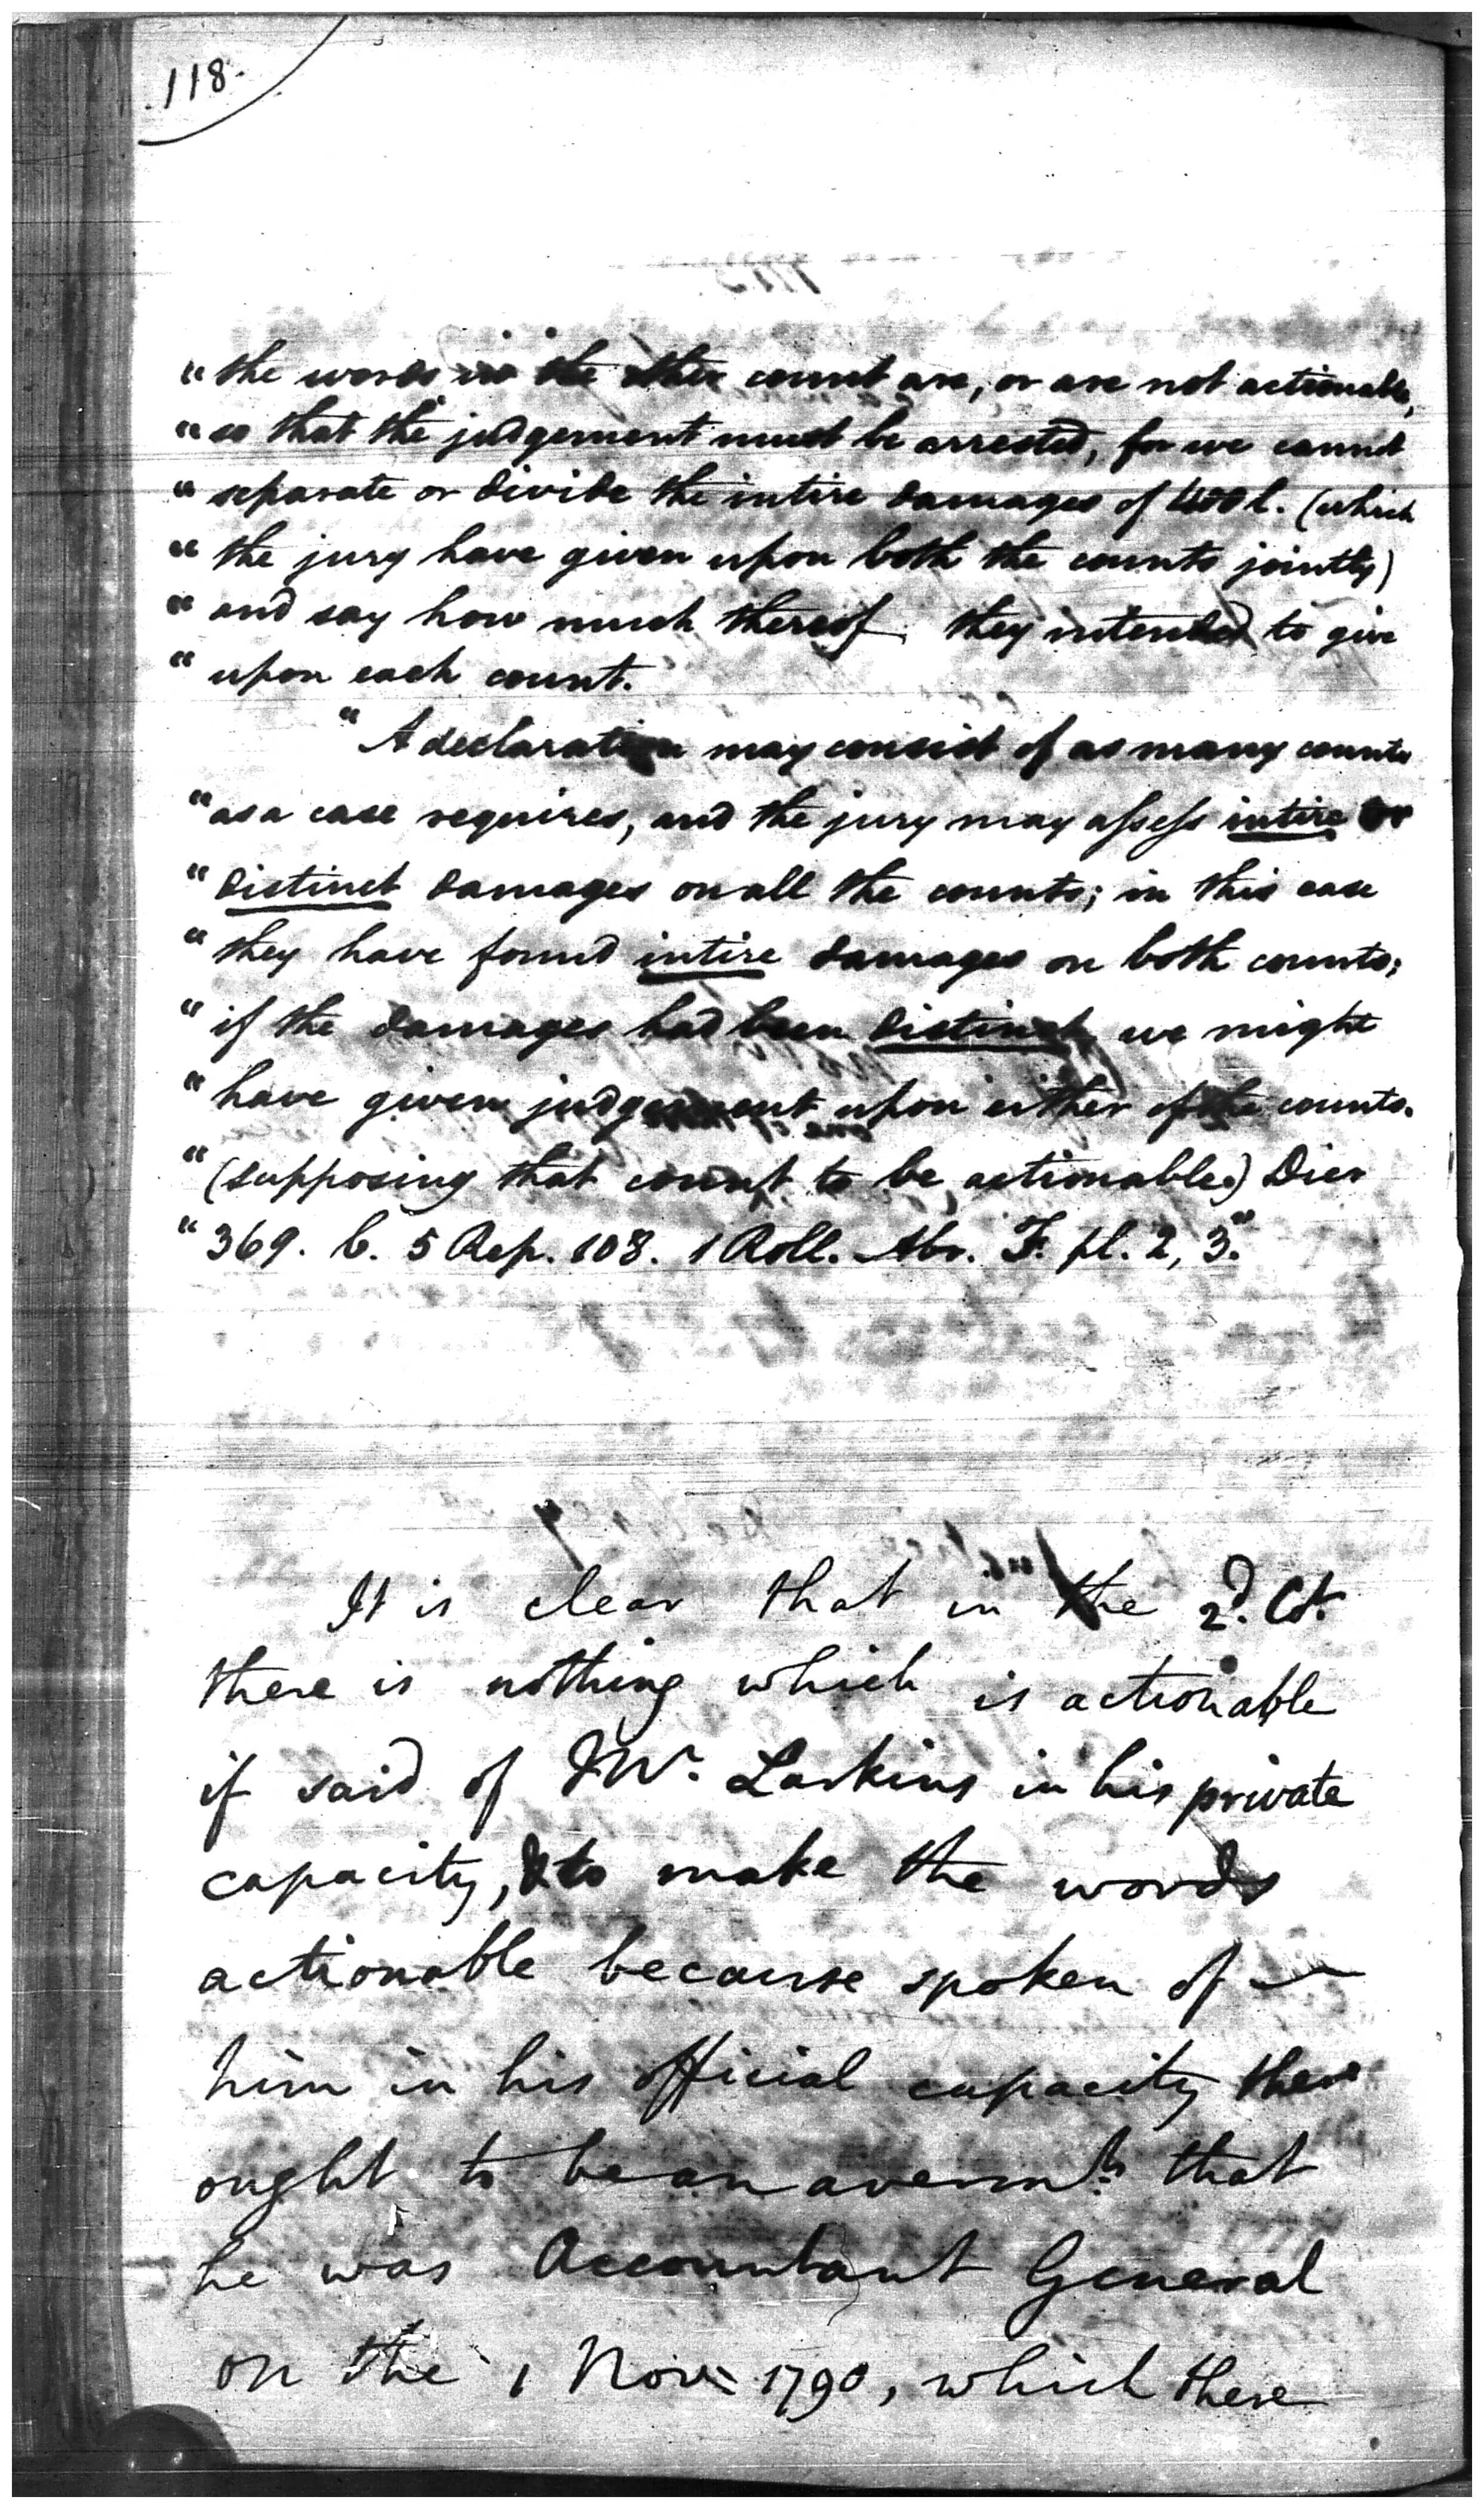 118.
"the words in the other count are, or are not actionable,
"so that the judgement must be arrested, for we cannot
"separate or divide the intire damages of 400l. (which
"the jury have given upon both the counts jointly)
"and say how much thereof they intended to give
"upon each count.
"A declaration may consist of as many counts
"as a case requires, and the jury may assess intire or
"distinct damages on all the counts; in this case
"they have found intire damages on both counts;
"if the damages had been distinct we might
"have given judgement upon either of the counts.
"(supposing that count to be actionable.) Dier
"369. b. 5 Rep. 108. 1 Roll. Abr. F. pl. 2, 3."
It is clear that in the 2d. Ct.
there is nothing which is actionable
if said of Larkins in his private
capacity, & to make the words
actionable because spoken of
him in his official capacity there
ought to be an avermt. that
he was Accountant General
on the 1 Nov. 1790, which there